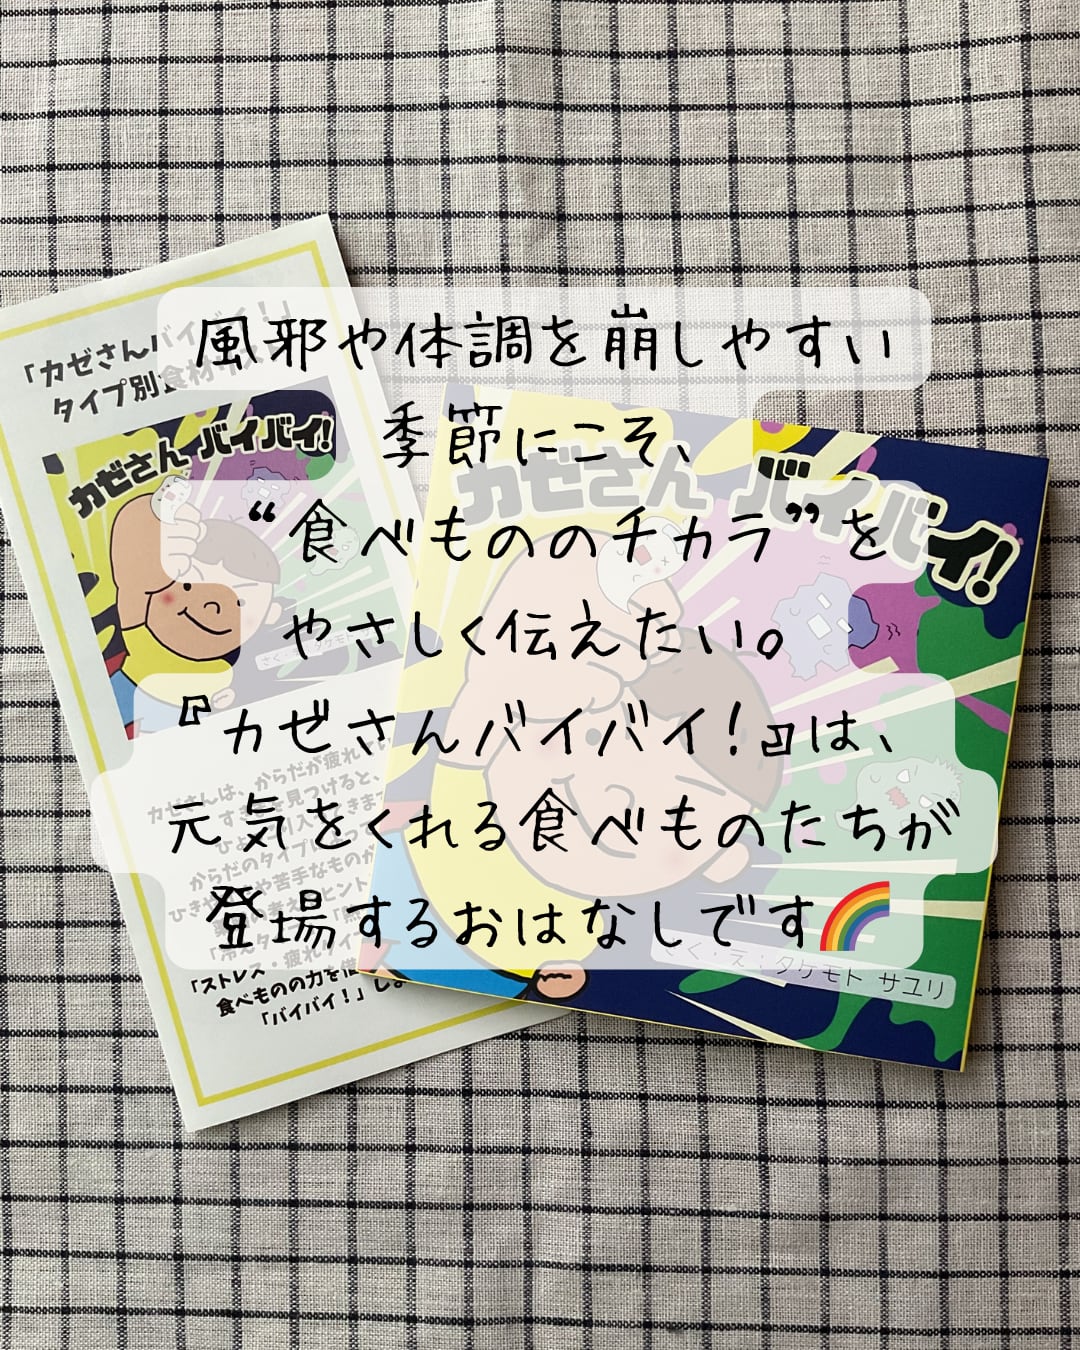 風邪や体調を崩しやすい
季節にこそ、
“食べもののチカラ”を
やさしく伝えたい。
『カゼさんバイバイ！』は、
元気をくれる食べものたちが
登場するおはなしです🌈
「カゼさんバイバイ！」
タイプ別食材リスト
カゼさん バイバイ！
さく・え：タケモト
カゼさんは、からだが疲れ
見つけると、
からだのタイプ
苦手なものが
ヒント
「ストレス・疲れ
食べものの力を借
「バイバイ！」し
カゼさん バイバイ！
さく・え：タケモト サユリ